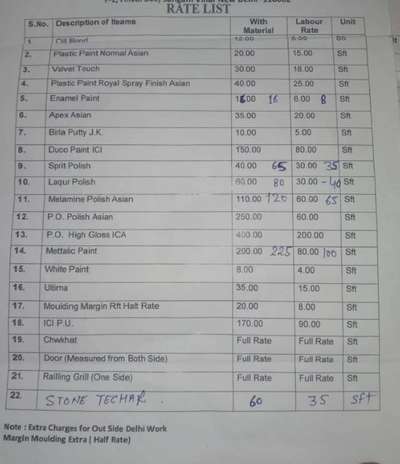 RATE LIST
S.No. Description of Iteams With Material Labour Rate Unit
1. Oil Bond 12.00 6.00 Sft
2. Plastic Paint Normal Asian 20.00 15.00 Sft
3. Valvet Touch 30.00 18.00 Sft
4. Plastic Paint Royal Spray Finish Asian 40.00 25.00 Sft
5. Enamel Paint 16.00 16 6.00 8 Sft
6. Apex Asian 35.00 20.00 Sft
7. Birla Putty J.K. 10.00 5.00 Sft
8. Duco Paint ICI 150.00 80.00 Sft
9. Sprit Polish 40.00 65 30.00 35 Sft
10. Laqur Polish 60.00 80 30.00 - 40 Sft
11. Melamine Polish Asian 110.00 120 60.00 65 Sft
12. P.O. Polish Asian 250.00 60.00 Sft
13. P.O. High Gloss ICA 400.00 200.00 Sft
14. Mettalic Paint 200.00 225 80.00 100 Sft
15. White Paint 8.00 4.00 Sft
16. Ultima 35.00 15.00 Sft
17. Moulding Margin Rft Halt Rate 20.00 8.00 Sft
18. ICI P.U. 170.00 90.00 Sft
19. Chwkhat Full Rate Full Rate Sft
20. Door (Measured from Both Side) Full Rate Full Rate Sft
21. Railling Grill (One Side) Full Rate Full Rate Sft
22. STONE TECHAR. 60 35 Sft
Note : Extra Charges for Out Side Delhi Work
Margin Moulding Extra ( Half Rate)